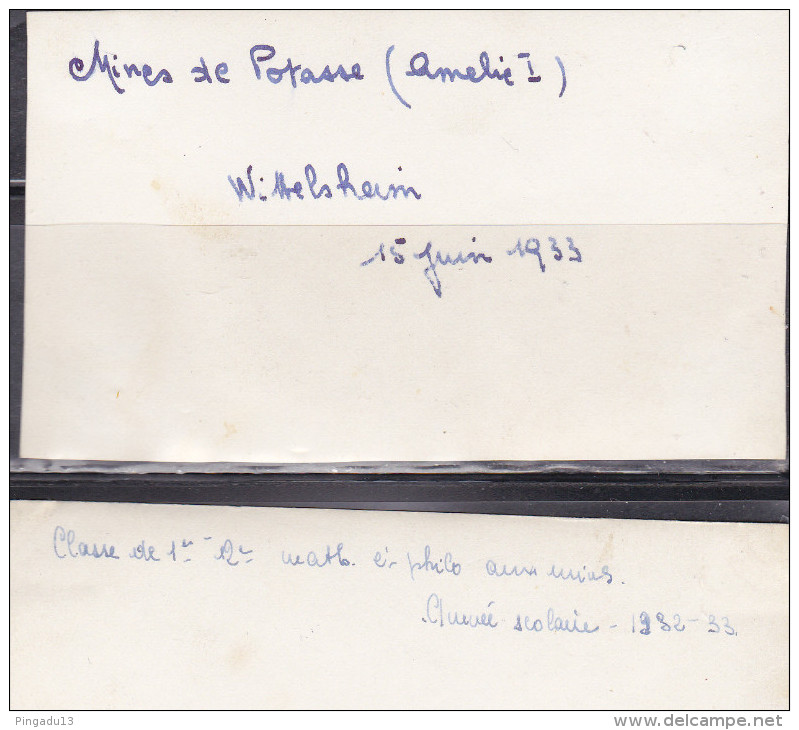 Mines de Potasse (Amelie I)
Wittelsheim
15 juin 1933
Classe de 1re 2e math. et philo aux mines.
Année scolaire - 1932-33.
Pingadu13
www.delcampe.net